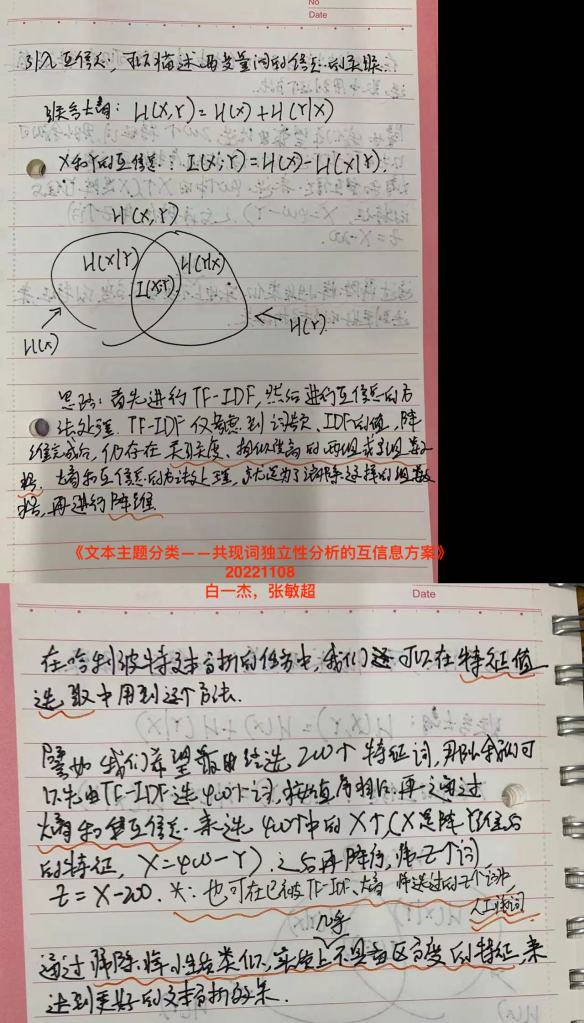 No
Date
引入互信息，可以描述两变量间的信息的关联
联合熵: H(X,Y)=H(X)+H(Y|X)
X和Y的互信息: I(X;Y)=H(X)-H(X|Y).
H(X,Y)
H(X|Y) H(Y|X)
I(X;Y)
H(X) H(Y)
思路: 首先进行TF-IDF,然后进行互信息的方
法处理. TF-IDF仅考虑到词频、IDF的值,降
维完成后,仍存在关联度、相似性高的两组或多组数
据. 熵和互信息的方法处理,就是为了消除这样的组数
据,再进行降维
《文本主题分类——共现词独立性分析的互信息方案》
20221108
白一杰，张敏超
Date
在哈利波特文本分析的任务中,我们还可以在特征值
选取中用到这个方法.
譬如我们希望最后结选200个特征词,那么我们可
以先由TF-IDF选400个词,按值序列后,再通过
熵和互信息.来选400个中的X个(X是降Y维后
的特征, X=400-Y). 之后再降伪,筛Z个词
Z=X-200. 也可在已被TF-IDF、熵筛选过的Z个词中,
人工排词
几乎
通过筛除掉小性质类似,实际上不具备区分度的特征,来
达到更好的文本分析效果.